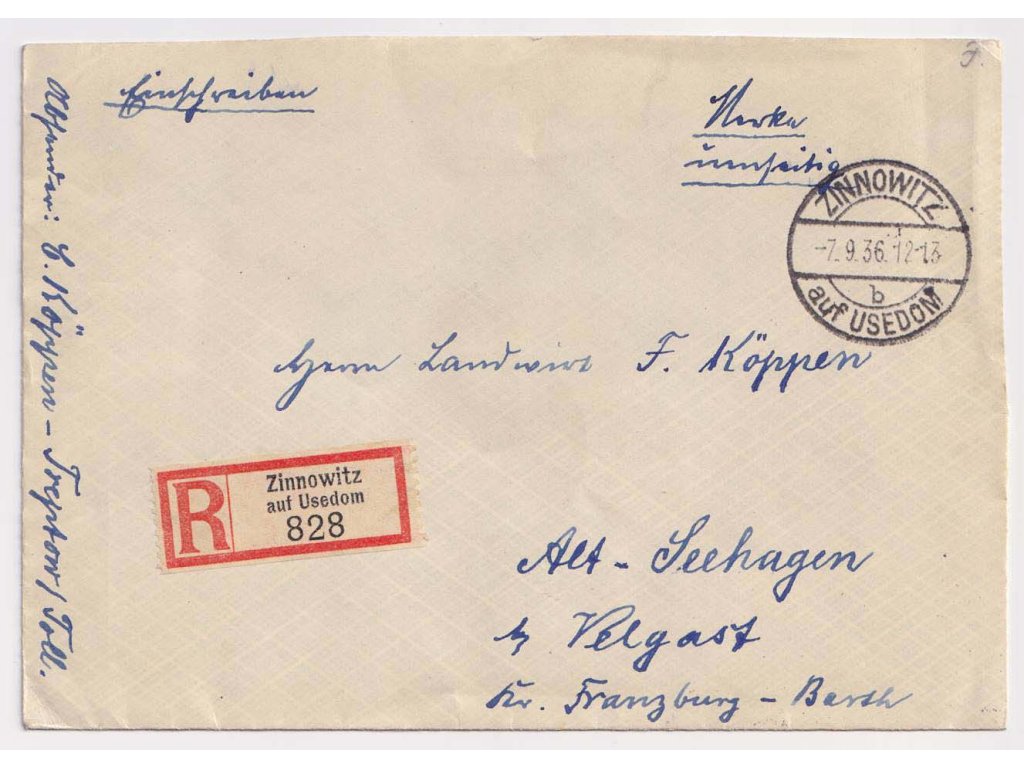 Einschreiben
Marke
umseitig
ZINNOWITZ
-7.9.36.12-13
b
auf USEDOM
Herrn Landwirt F. Köppen
R
Zinnowitz
auf Usedom
828
Alt-Seehagen
b/ Velgast
Kr. Franzburg - Barth
Absender: E. Köppen - Treptow/Toll.